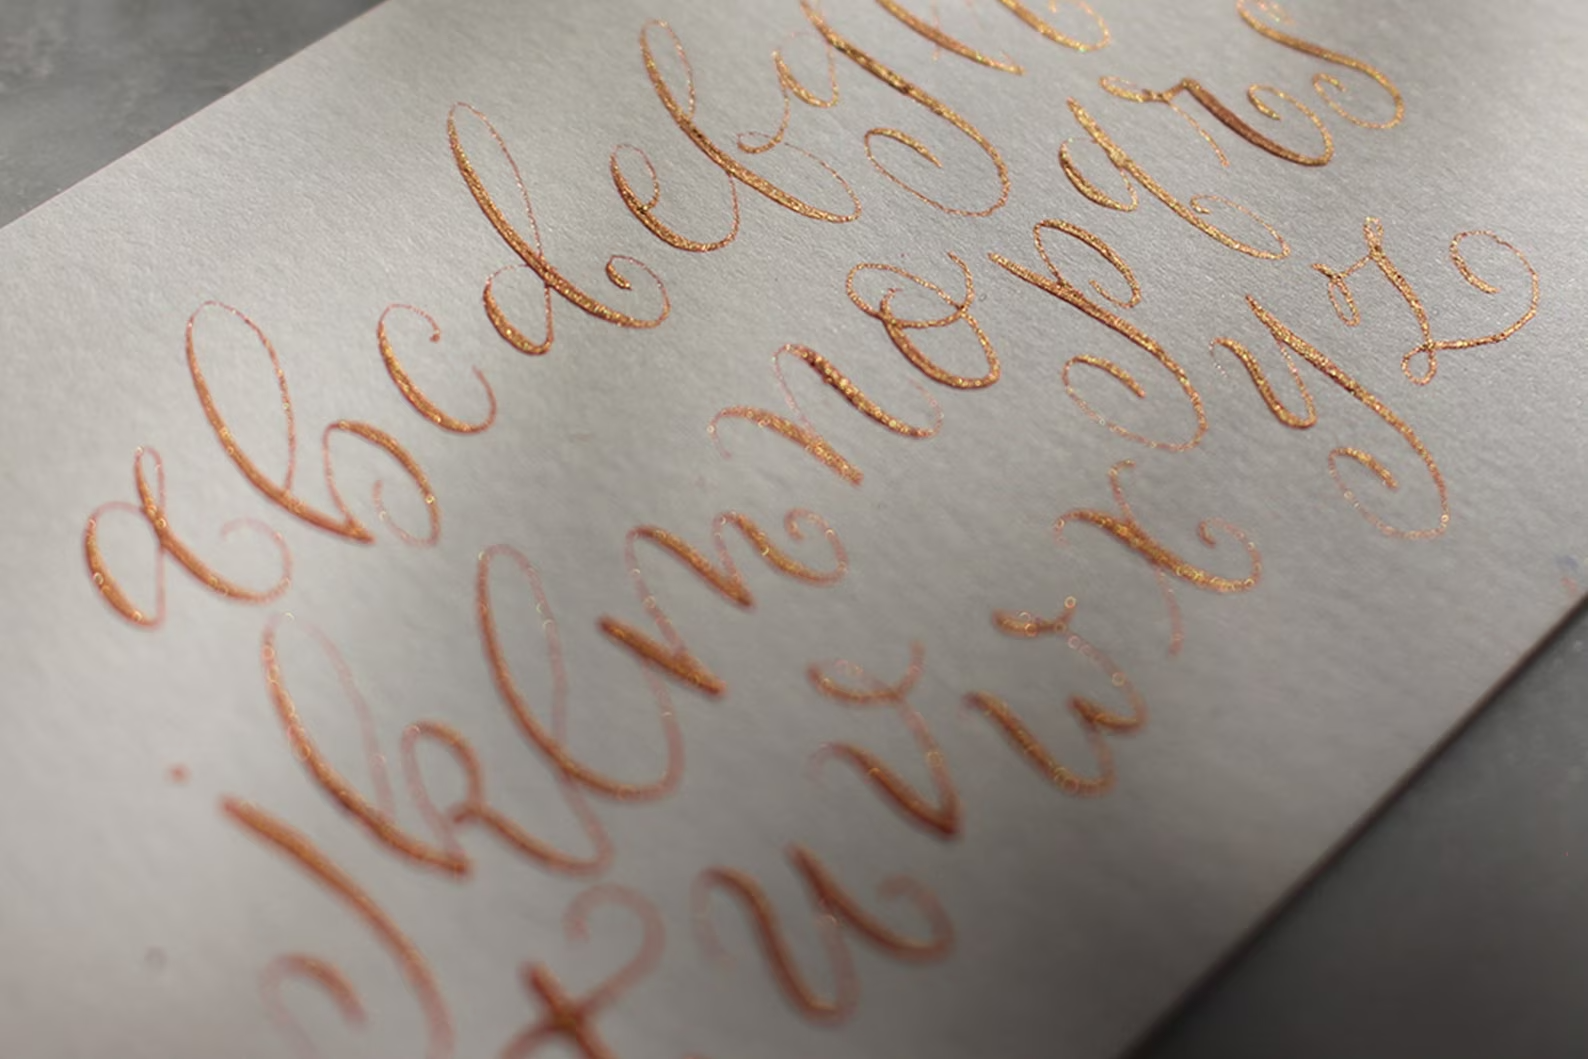 a b c d e f g h
j k l m n o p q r s
t u v w x y z